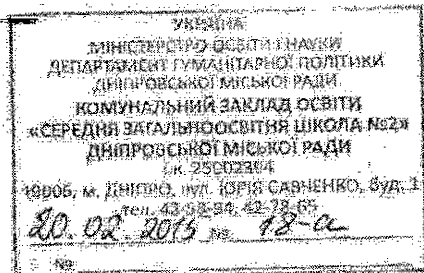 УКРАЇНА
МІНІСТЕРСТВО ОСВІТИ І НАУКИ
ДЕПАРТАМЕНТ ГУМАНІТАРНОЇ ПОЛІТИКИ
ДНІПРОВСЬКОЇ МІСЬКОЇ РАДИ
КОМУНАЛЬНИЙ ЗАКЛАД ОСВІТИ
«СЕРЕДНЯ ЗАГАЛЬНООСВІТНЯ ШКОЛА №2»
ДНІПРОВСЬКОЇ МІСЬКОЇ РАДИ
і.к.
м. ДНІПРО, вул. ЮРІЯ САВЧЕНКО, буд. 1
тел.
20. 02. 2015 № 18-а
№